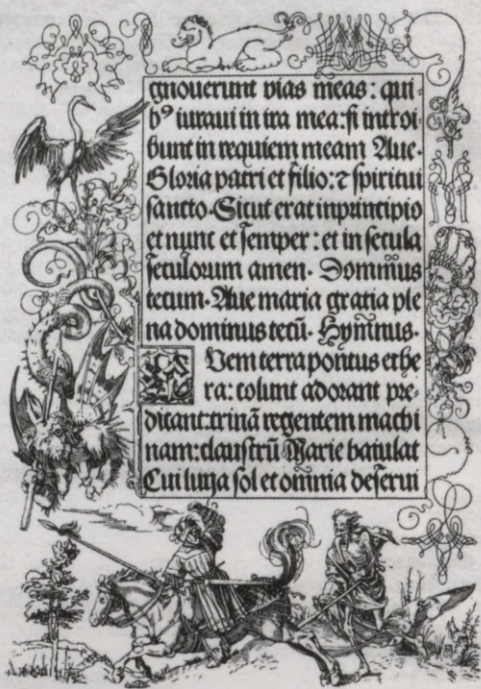 gnouerunt vias meas: qui-
bꝰ iuraui in ira mea: si introi-
bunt in requiem meam Aue-
Gloria patri et filio: ⁊ spiritui
sancto. Sicut erat in principio
et nunc et semper: et in secula
seculorum amen. Dominus
tecum. Aue maria gratia ple
na dominus tecū. Hymnus.
Quem terra pontus ethe
ra: colunt adorant pre-
dicant: trinā regentem machi
nam: claustrū Marie baiulat
Cui luna sol et omnia deserui